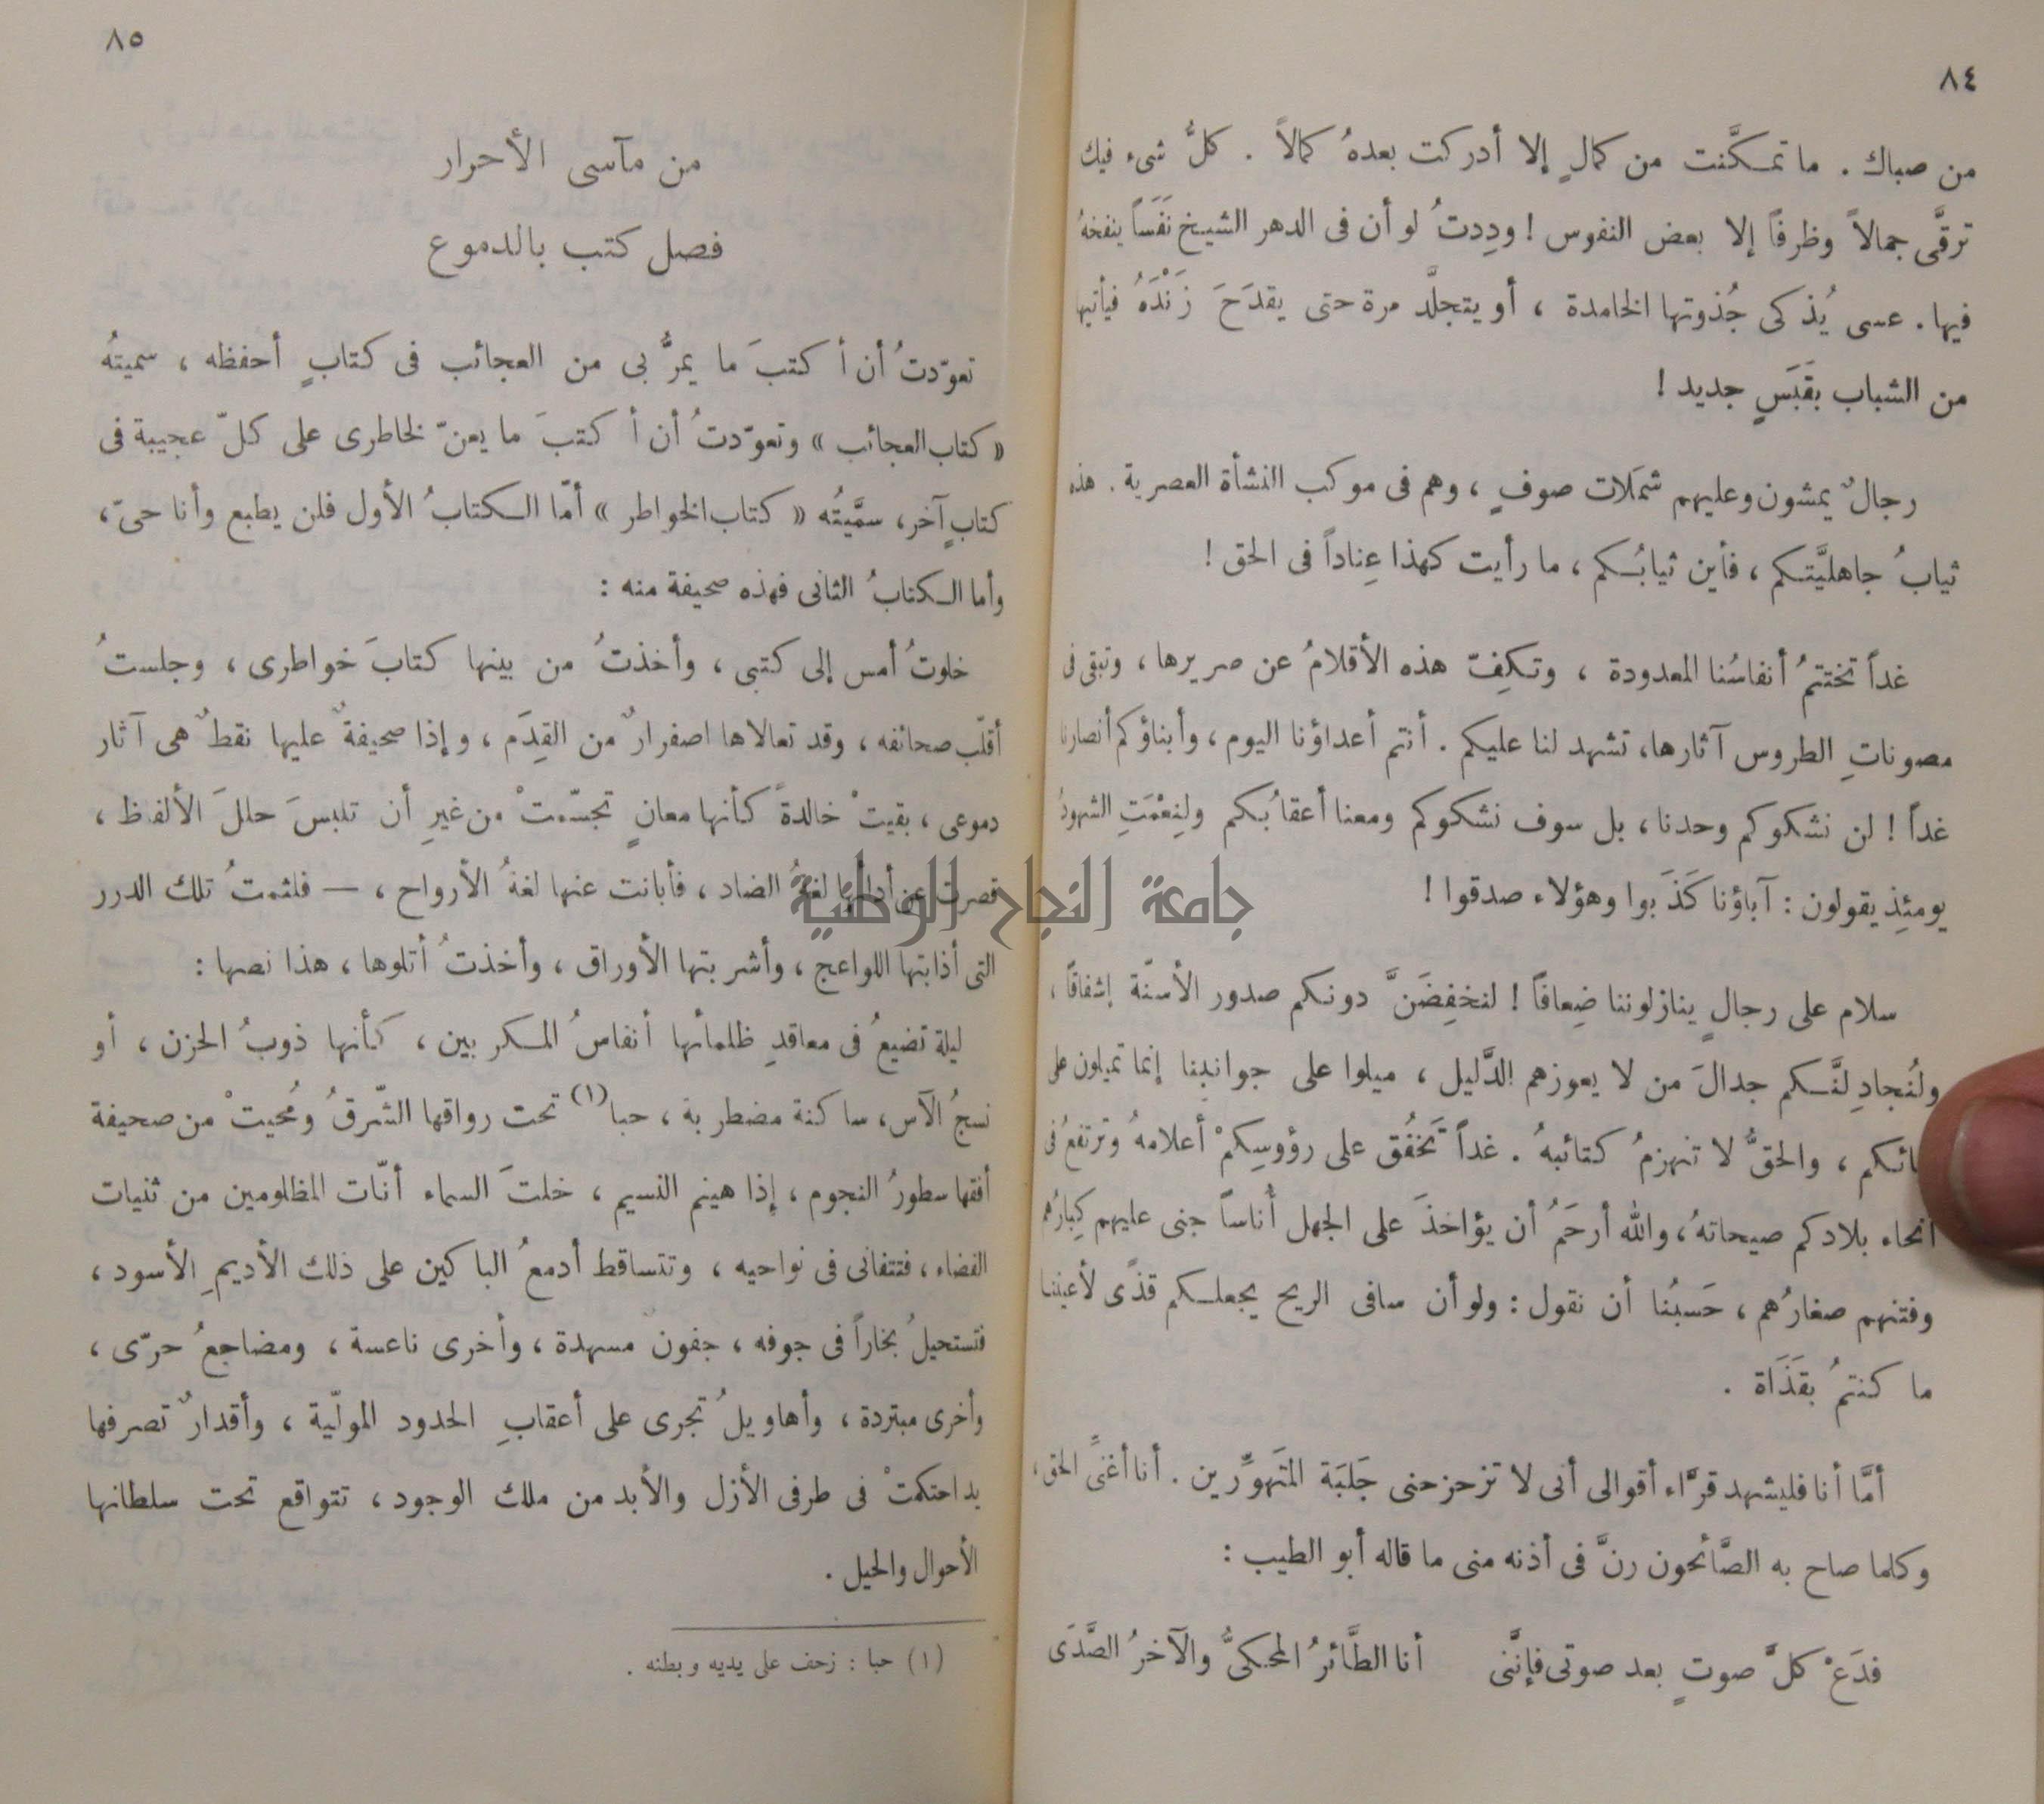 ٨٤
من صباك . ما تمكَّنت من كمالٍ إلا أدركت بعدهُ كمالاً . كلُّ شىء فيك
ترقَّى جمالاً وظرفاً إلا بعض النفوس ! ودِدتُ لو أن فى الدهر الشيخ نَفَساً ينفخهُ
فيها . عسى يُذكى جُذوتها الخامدة ، أو يتجلَّد مرة حتى يقدَحَ زَنْدَهُ فيأتيها
من الشباب بقَبَسٍ جديد !
رجالٌ يمشون وعليهم شَمَلات صوفٍ ، وهم فى موكب النشأة العصرية . هذه
ثيابُ جاهليَّتكم ، فأين ثيابُكم ، ما رأيت كهذا عِناداً فى الحق !
غداً تختتمُ أنفاسُنا المعدودة ، وتكِفّ هذه الأقلامُ عن صريرها ، وتبقى فى
مصوناتِ الطروس آثارها ، تشهد لنا عليكم . أنتم أعداؤنا اليوم ، وأبناؤكم أنصارنا
غداً ! لن نشكوكم وحدنا ، بل سوف نشكوكم ومعنا أعقابُكم ولنِعْمَتِ الشهودُ
يومئِذٍ يقولون : آباؤنا كَذَبوا وهؤلاء صدقوا !
سلام على رجالٍ ينازلوننا ضِعافاً ! لنخفِضَنَّ دونكم صدور الأسنّة إشفاقاً ،
ولنُجادِلنَّكم جدالَ من لا يعوزهم الدَّليل ، ميلوا على جوانبنا إنما تميلون على
ائكم ، والحقُّ لا تنهزمُ كتائبهُ . غداً تَخفُق على رؤوسِكمْ أعلامهُ وترتفعُ فى
أنحاء بلادكم صيحاتهُ ، والله أرحَمُ أن يؤاخذَ على الجهل أُناساً جنى عليهم كِبارُهم
وفتنهم صغارُهم ، حَسبُنا أن نقول : ولو أن سافى الريح يجعلكم قذًى لأعيننا
ما كنتمُ بقَذَاة .
أمَّا أنا فليشهد قرَّاء أقوالى أنى لا تزحزحنى جَلبَة المتَهوِّرين . أنا أغنَّى الحق ،
وكلما صاح به الصَّائحون رنَّ فى أذنه منى ما قاله أبو الطيب :
فدَعْ كلَّ صوتٍ بعد صوتى فإنَّنى أنا الطَّائرُ المحكىُّ والآخرُ الصَّدَى
٨٥
من مآسى الأحرار
فصل كتب بالدموع
تعوّدتُ أن أكتبَ ما يمرُّ بى من العجائب فى كتابٍ أحفظه ، سميتهُ
« كتاب العجائب » وتعوّدتُ أن أكتبَ ما يعنّ لخاطرى على كلّ عجيبة فى
كتابٍ آخر ، سمَّيتُه « كتاب الخواطر » أمّا الكتابُ الأول فلن يطبع وأنا حىّ ،
وأما الكتابُ الثانى فهذه صحيفة منه :
خلوتُ أمس إلى كتبى ، وأخذتُ من بينها كتابَ خواطرى ، وجلستُ
أقلّب صحائفه ، وقد تعالاها اصفرارٌ من القِدَم ، وإذا صحيفةٌ عليها نقطٌ هى آثار
دموعى ، بقيتْ خالدةً كأنها معانٍ تجسّمتْ من غيرِ أن تلبسَ حللَ الألفاظ ،
قصرت عن أدائها لغةُ الضاد ، فأبانت عنها لغةُ الأرواح ، — فلثمتُ تلك الدرر
التى أذابتها اللواعج ، وأشربتها الأوراق ، وأخذتُ أتلوها ، هذا نصها :
ليلة تضيعُ فى معاقدِ ظلمائها أنفاسُ المكربين ، كأنها ذوبُ الحزن ، أو
نسجُ الآس ، ساكنة مضطربة ، حبا (١) تحت رواقها الشّرقُ ومُحيتْ من صحيفة
أفقها سطورُ النجوم ، إذا هينم النسيم ، خلتَ السماء أنّات المظلومين من ثنيات
الفضاء ، فتتفانى فى نواحيه ، وتتساقط أدمعُ الباكين على ذلك الأديمِ الأسود ،
فتستحيلُ بخاراً فى جوفه ، جفون مسهدة ، وأخرى ناعسة ، ومضاجعُ حرّى ،
وأخرى مبتردة ، وأهاويلُ تجرى على أعقابِ الحدود المولّية ، وأقدارٌ تصرفها
يد احتكمتْ فى طرفى الأزل والأبد من ملك الوجود ، تتواقع تحت سلطانها
الأحوال والحيل .
(١) حبا : زحف على يديه وبطنه .
جامعة النجاح الوطنية